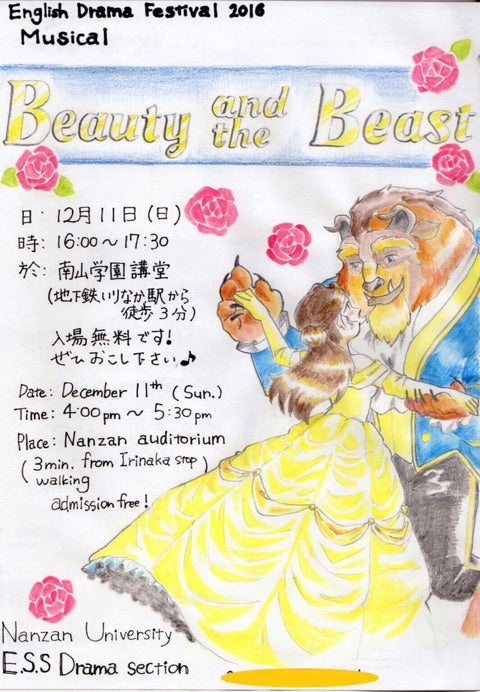 English Drama Festival 2016
Musical
Beauty and the Beast
日: 12月11日(日)
時: 16:00〜17:30
於: 南山学園講堂
(地下鉄いりなか駅から
徒歩3分)
入場無料です!
ぜひおこし下さい♪
Date: December 11th (Sun.)
Time: 4:00pm 〜 5:30pm
Place: Nanzan auditorium
(3min. from Irinaka stop)
walking
admission free!
Nanzan University
E.S.S Drama section